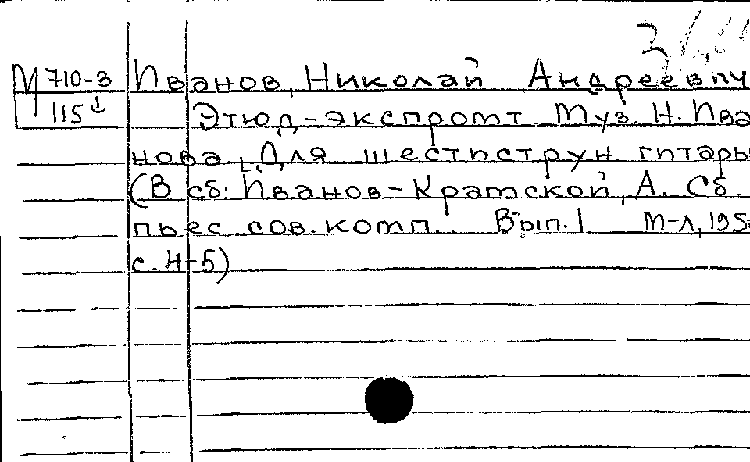 М 710-3 Иванов, Николай Андреевич
115
Этюд-экспромт Муз. Н. Ива
нова. Для шестиструн гитары
(В сб: Иванов-Крамской, А. Сб.
пьес сов. комп. Вып. 1 М-Л, 195
с. 4-5)